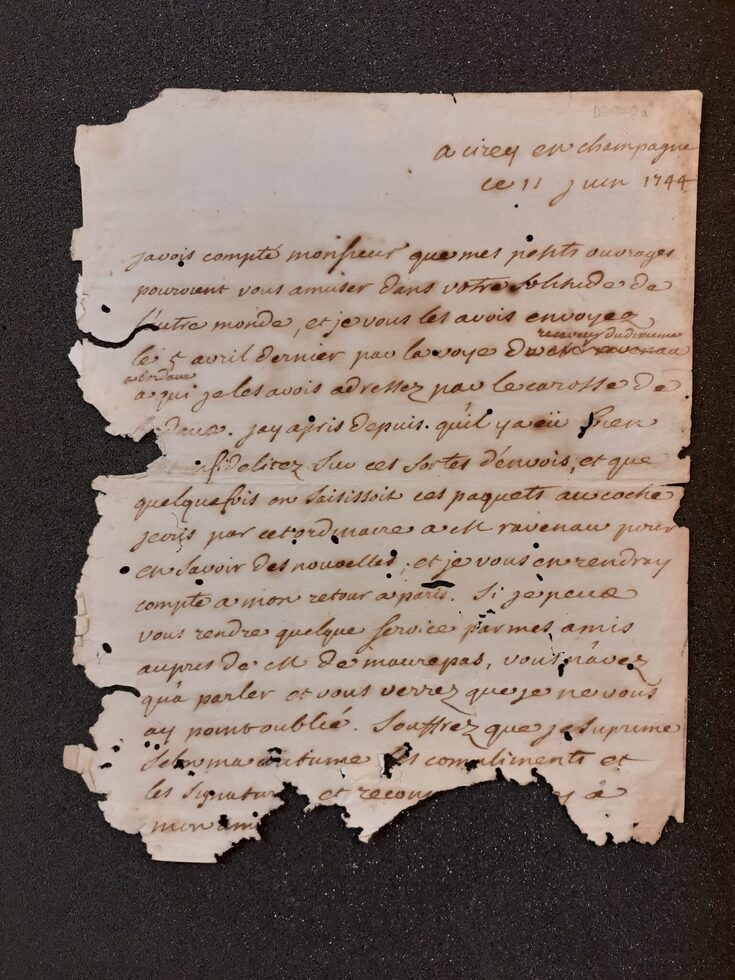 a cirey en champagne
ce 11 juin 1744
javois compté monsieur que mes petits ouvrages
pouroient vous amuser dans votre solitude de
l'autre monde, et je vous les avois envoyez
receveur du dixieme
le 5 avril dernier par la voye de ravenau
a bordaux
a qui je les avois adressez par le carosse de
jay apris depuis. qu'il y a eü bien
infidelitez sur ces sortes d'envois, et que
quelquefois on saisissoit ces paquets au coche
jecris par cet ordinaire a M ravenau pour
en savoir des nouvelles, et je vous en rendray
compte a mon retour a paris. Si je peux
vous rendre quelque service par mes amis
aupres de M de maurepas, vous n'avez
qu'a parler et vous verrez que je ne vous
ay point oublié. Souffrez que je suprime
selon ma coutume les compliments et
les signatur et recon y a
mon ami